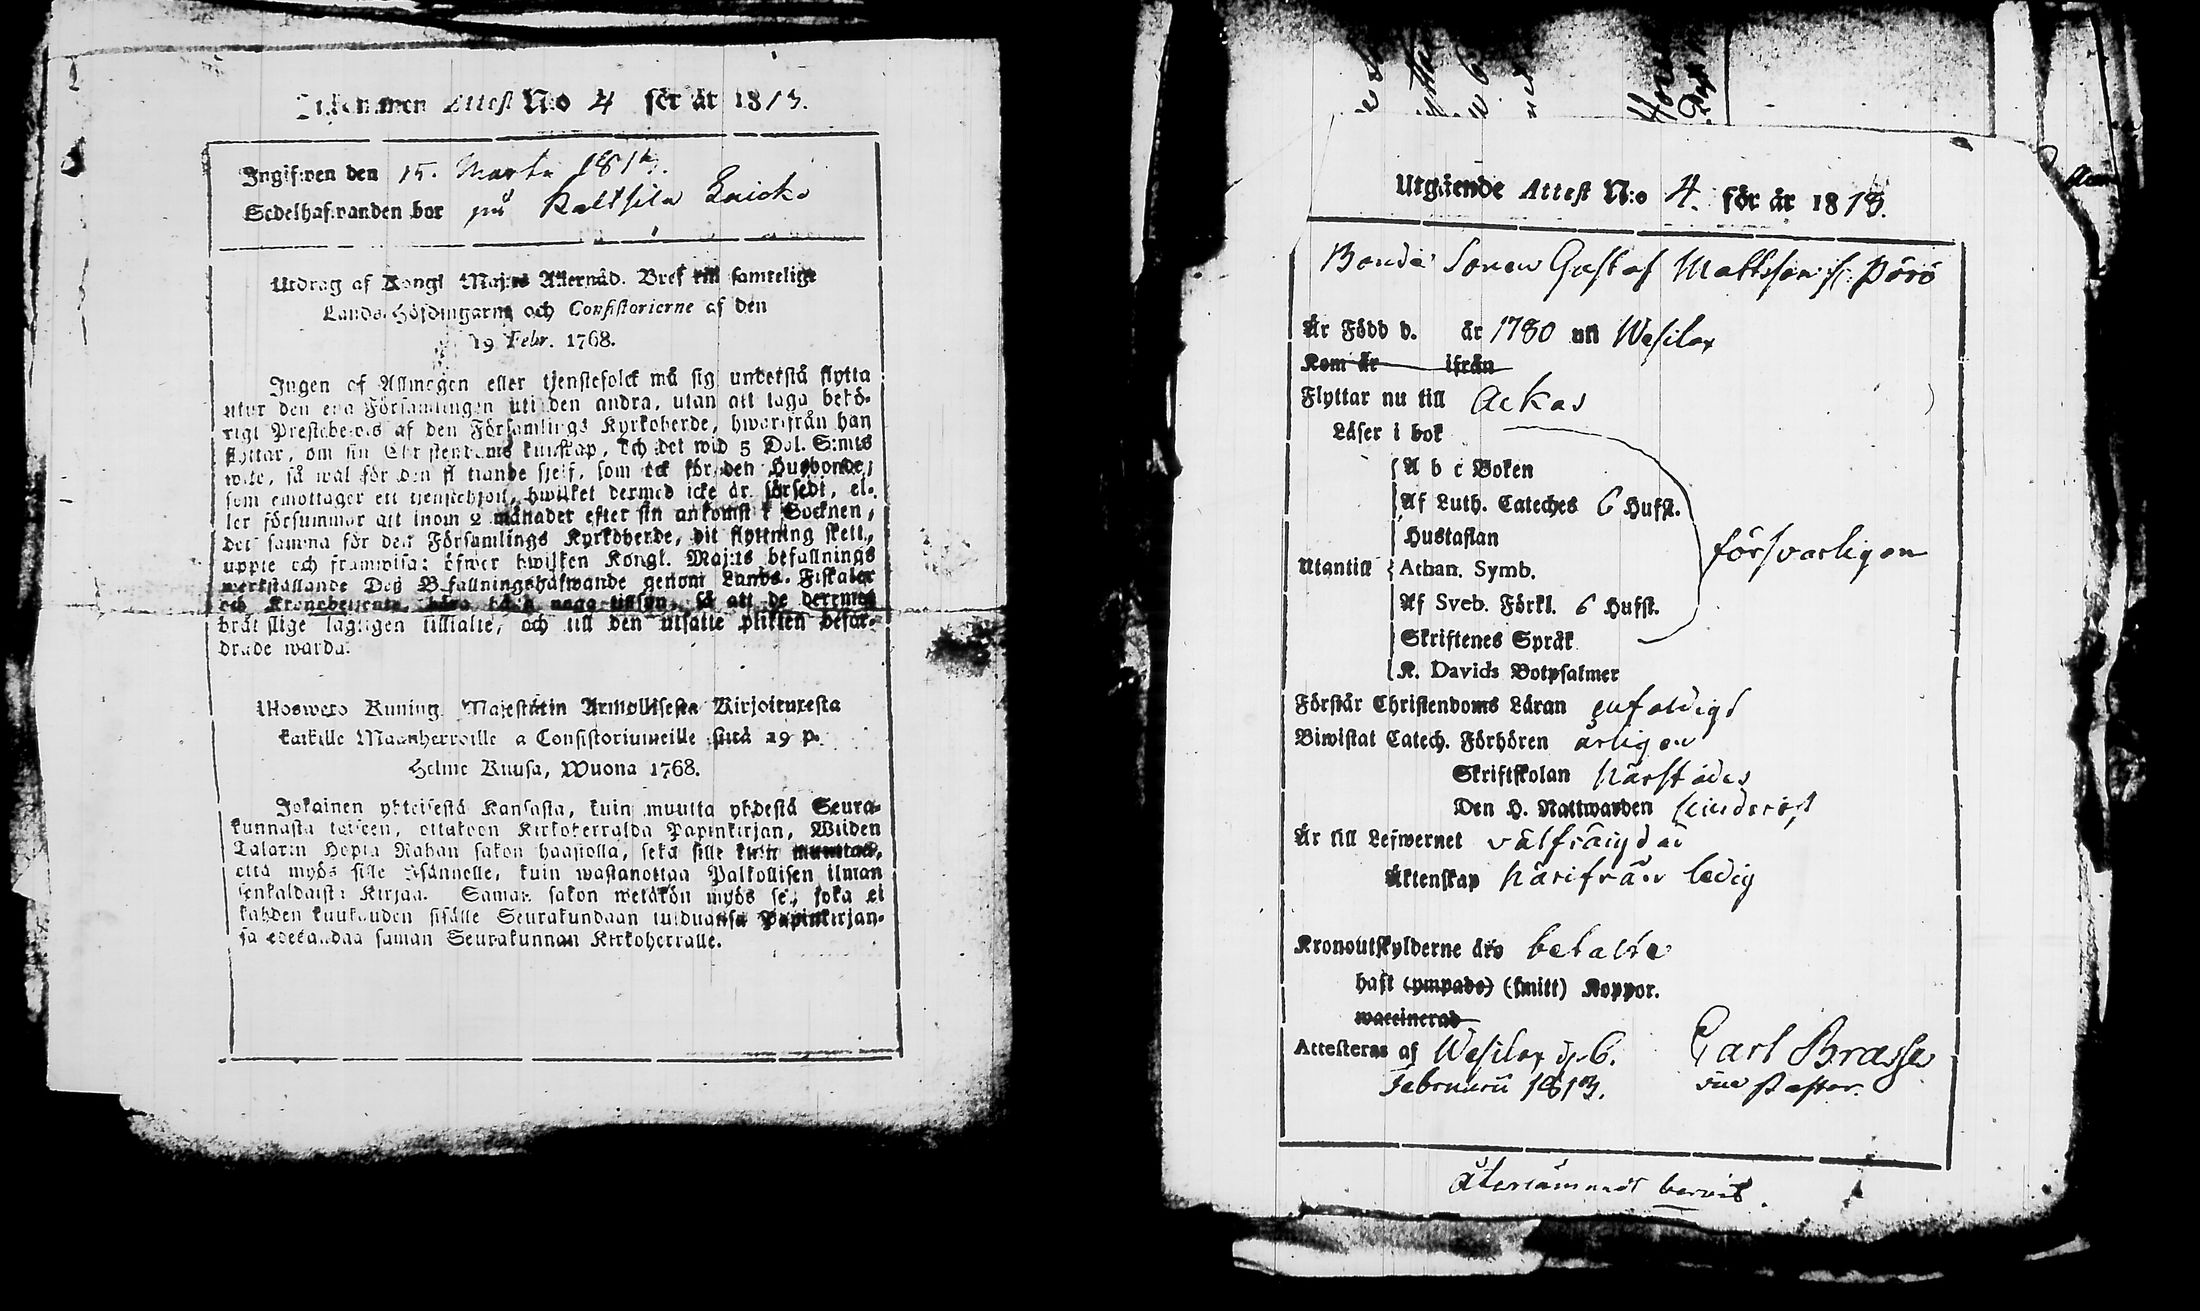 Inkommen Attest N:o 4 för år 1813.
Ingifwen den 15. Martii 1813.
Sedelhafwanden bor på Kaltsila
Utdrag af Kongl Maj:ts Allernåd. Bref till samtelige
Lands-Höfdingarne och Consistorierne af den
19 Febr. 1768.
Ingen af Allmogen eller tjenstefolck må sig understå flytta
utur den ena Församlingen uti den andra, utan att taga behö-
rigt Prestebewis af den Församlings Kyrkoherde, hwarifrån han
flyttar, om sin Christendoms kunskap, och det wid 5 Dal. S:mts
wite, så wäl för den flyttande sjelf, som ock för den Husbonde,
som emottager ett tjenstehjon, hwilket dermed icke är försedt, el-
ler försummar att inom 2 månader efter sin ankomst i Socknen,
det samma för den Församlings Kyrkoherde, dit flyttning skett,
uppte och framwisa: öfwer hwilken Kongl. Maj:ts befallnings
werkställande Deß Befallningshafwande genom Lands-Fiskaler
och Kronobetjente böra noga tillsyn, så att de dermed
brätslige lagligen tilltalte, och till den utsatte plikten befor-
drade warda.
Ulosweto Kuning. Majestätin Armollisesta Kirjoituxesta
kaikille Maanherroille ja Consistoriumeille siitä 19 p.
Helme Kuusa, Wuona 1768.
Jokainen yhteisestä Kansasta, kuin muutta yhdestä Seura-
kunnasta toiseen, ottakoon Kirkoherralda Papinkirjan, Wiiden
Talarin Hopia Rahan sakon haastolla, sekä sille kuin muuttaa,
että myös sille Isännelle, kuin wastanottaa Palkollisen ilman
senkaldaista Kirjaa. Saman sakon wetäkön myös se, joka ei
kahden kuukauden sisälle Seurakundaan tulduansa Papinkirjan-
sa edeskandaa saman Seurakunnan Kirkoherralle.
Utgående Attest N:o 4. för år 1813.
Bonde Sonen Gustaf Mattsson fr. Pörö
Är Född d. år 1780 uti Wesilax
Kom år ifrån
Flyttar nu till Ackas
Läser i bok
A b c Boken
Af Luth. Cateches 6 Hufst.
Hustaflan
Utantill Athan. Symb. försvarligen
Af Sveb. Förkl. 6 Hufst.
Skriftenes Språk
K. Davids Botpsalmer
Förstår Christendoms Läran enfaldigt
Biwistat Catech. Förhören årligen
Skriftskolan härstädes
Den H. Nattwarden
Är till Lefwernet välfrägdad
Äktenskap härifrån ledig
Kronoutskylderne äro betalte
haft (ympade) (smitt) Koppor.
waccinerad
Attesteras af Wesilax d. 6. Carl Brasse
Februarii 1813. Pastor.
återsämnadt bewis